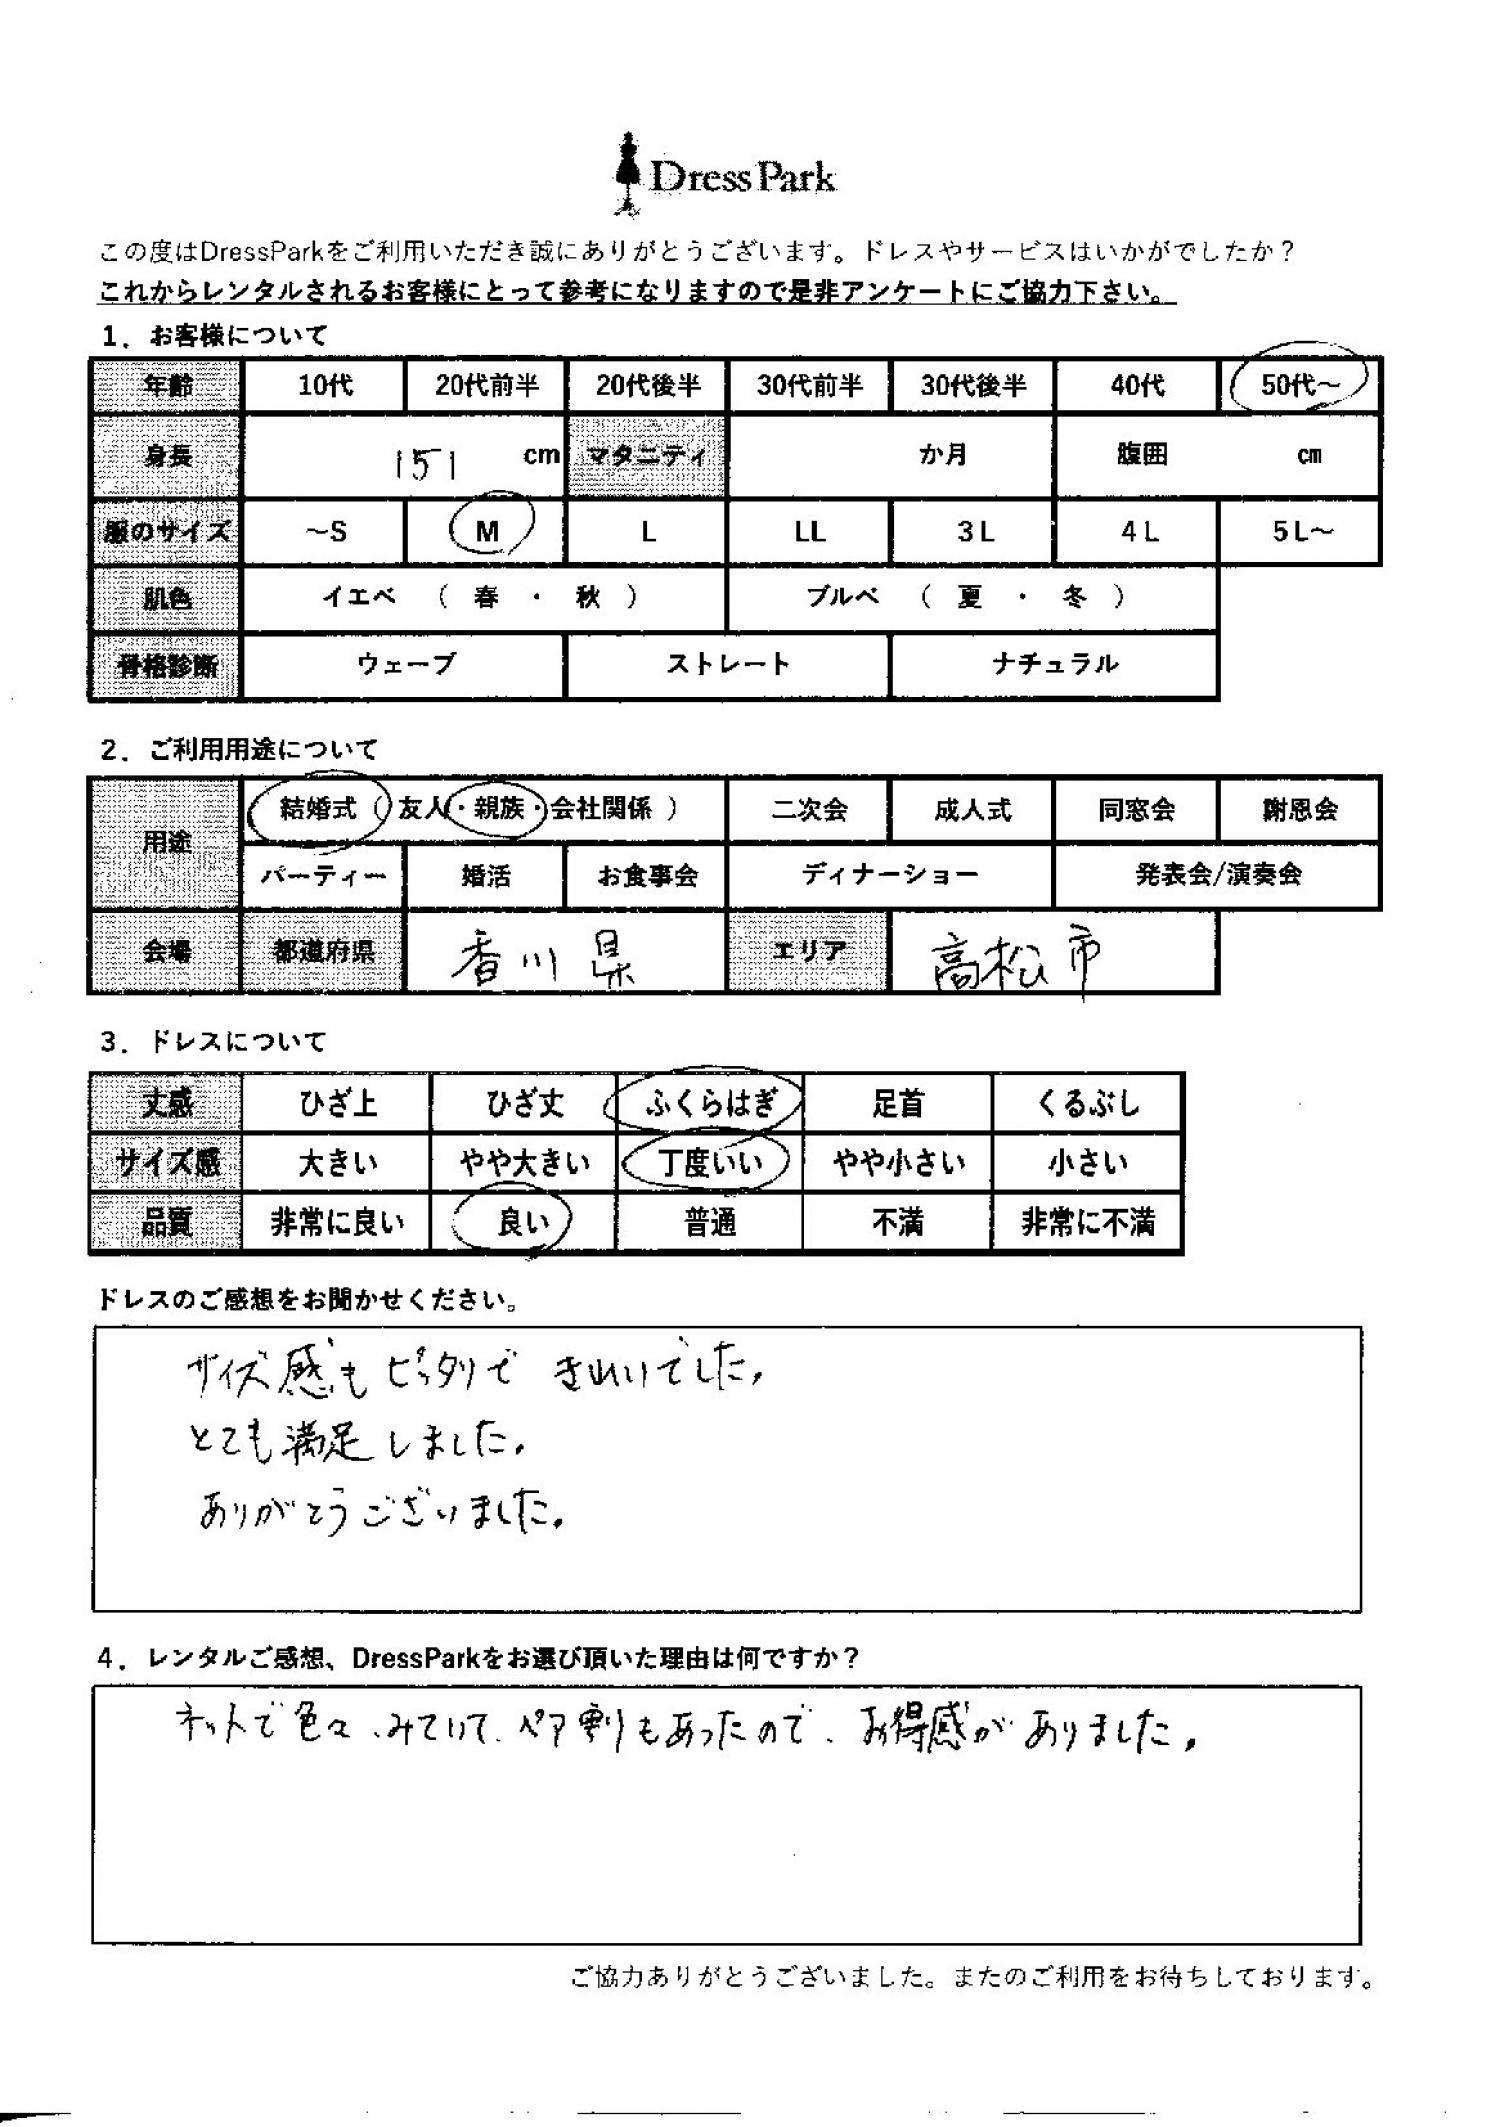 Dress Park
この度はDressParkをご利用いただき誠にありがとうございます。ドレスやサービスはいかがでしたか？
これからレンタルされるお客様にとって参考になりますので是非アンケートにご協力下さい。
1．お客様について
年齢 10代 20代前半 20代後半 30代前半 30代後半 40代 50代～
身長 151 cm マタニティ か月 腹囲 cm
服のサイズ ～S M L LL 3L 4L 5L～
肌色 イエベ （ 春 ・ 秋 ） ブルベ （ 夏 ・ 冬 ）
骨格診断 ウェーブ ストレート ナチュラル
2．ご利用用途について
用途 結婚式（友人・親族・会社関係 ） 二次会 成人式 同窓会 謝恩会
パーティー 婚活 お食事会 ディナーショー 発表会/演奏会
会場 都道府県 香川県 エリア 高松市
3．ドレスについて
丈感 ひざ上 ひざ丈 ふくらはぎ 足首 くるぶし
サイズ感 大きい やや大きい 丁度いい やや小さい 小さい
品質 非常に良い 良い 普通 不満 非常に不満
ドレスのご感想をお聞かせください。
サイズ感もピッタリで きれいでした。
とても満足しました。
ありがとうございました。
4．レンタルご感想、DressParkをお選び頂いた理由は何ですか？
ネットで色々、みていて、ペア割りもあったので、お得感がありました。
ご協力ありがとうございました。またのご利用をお待ちしております。